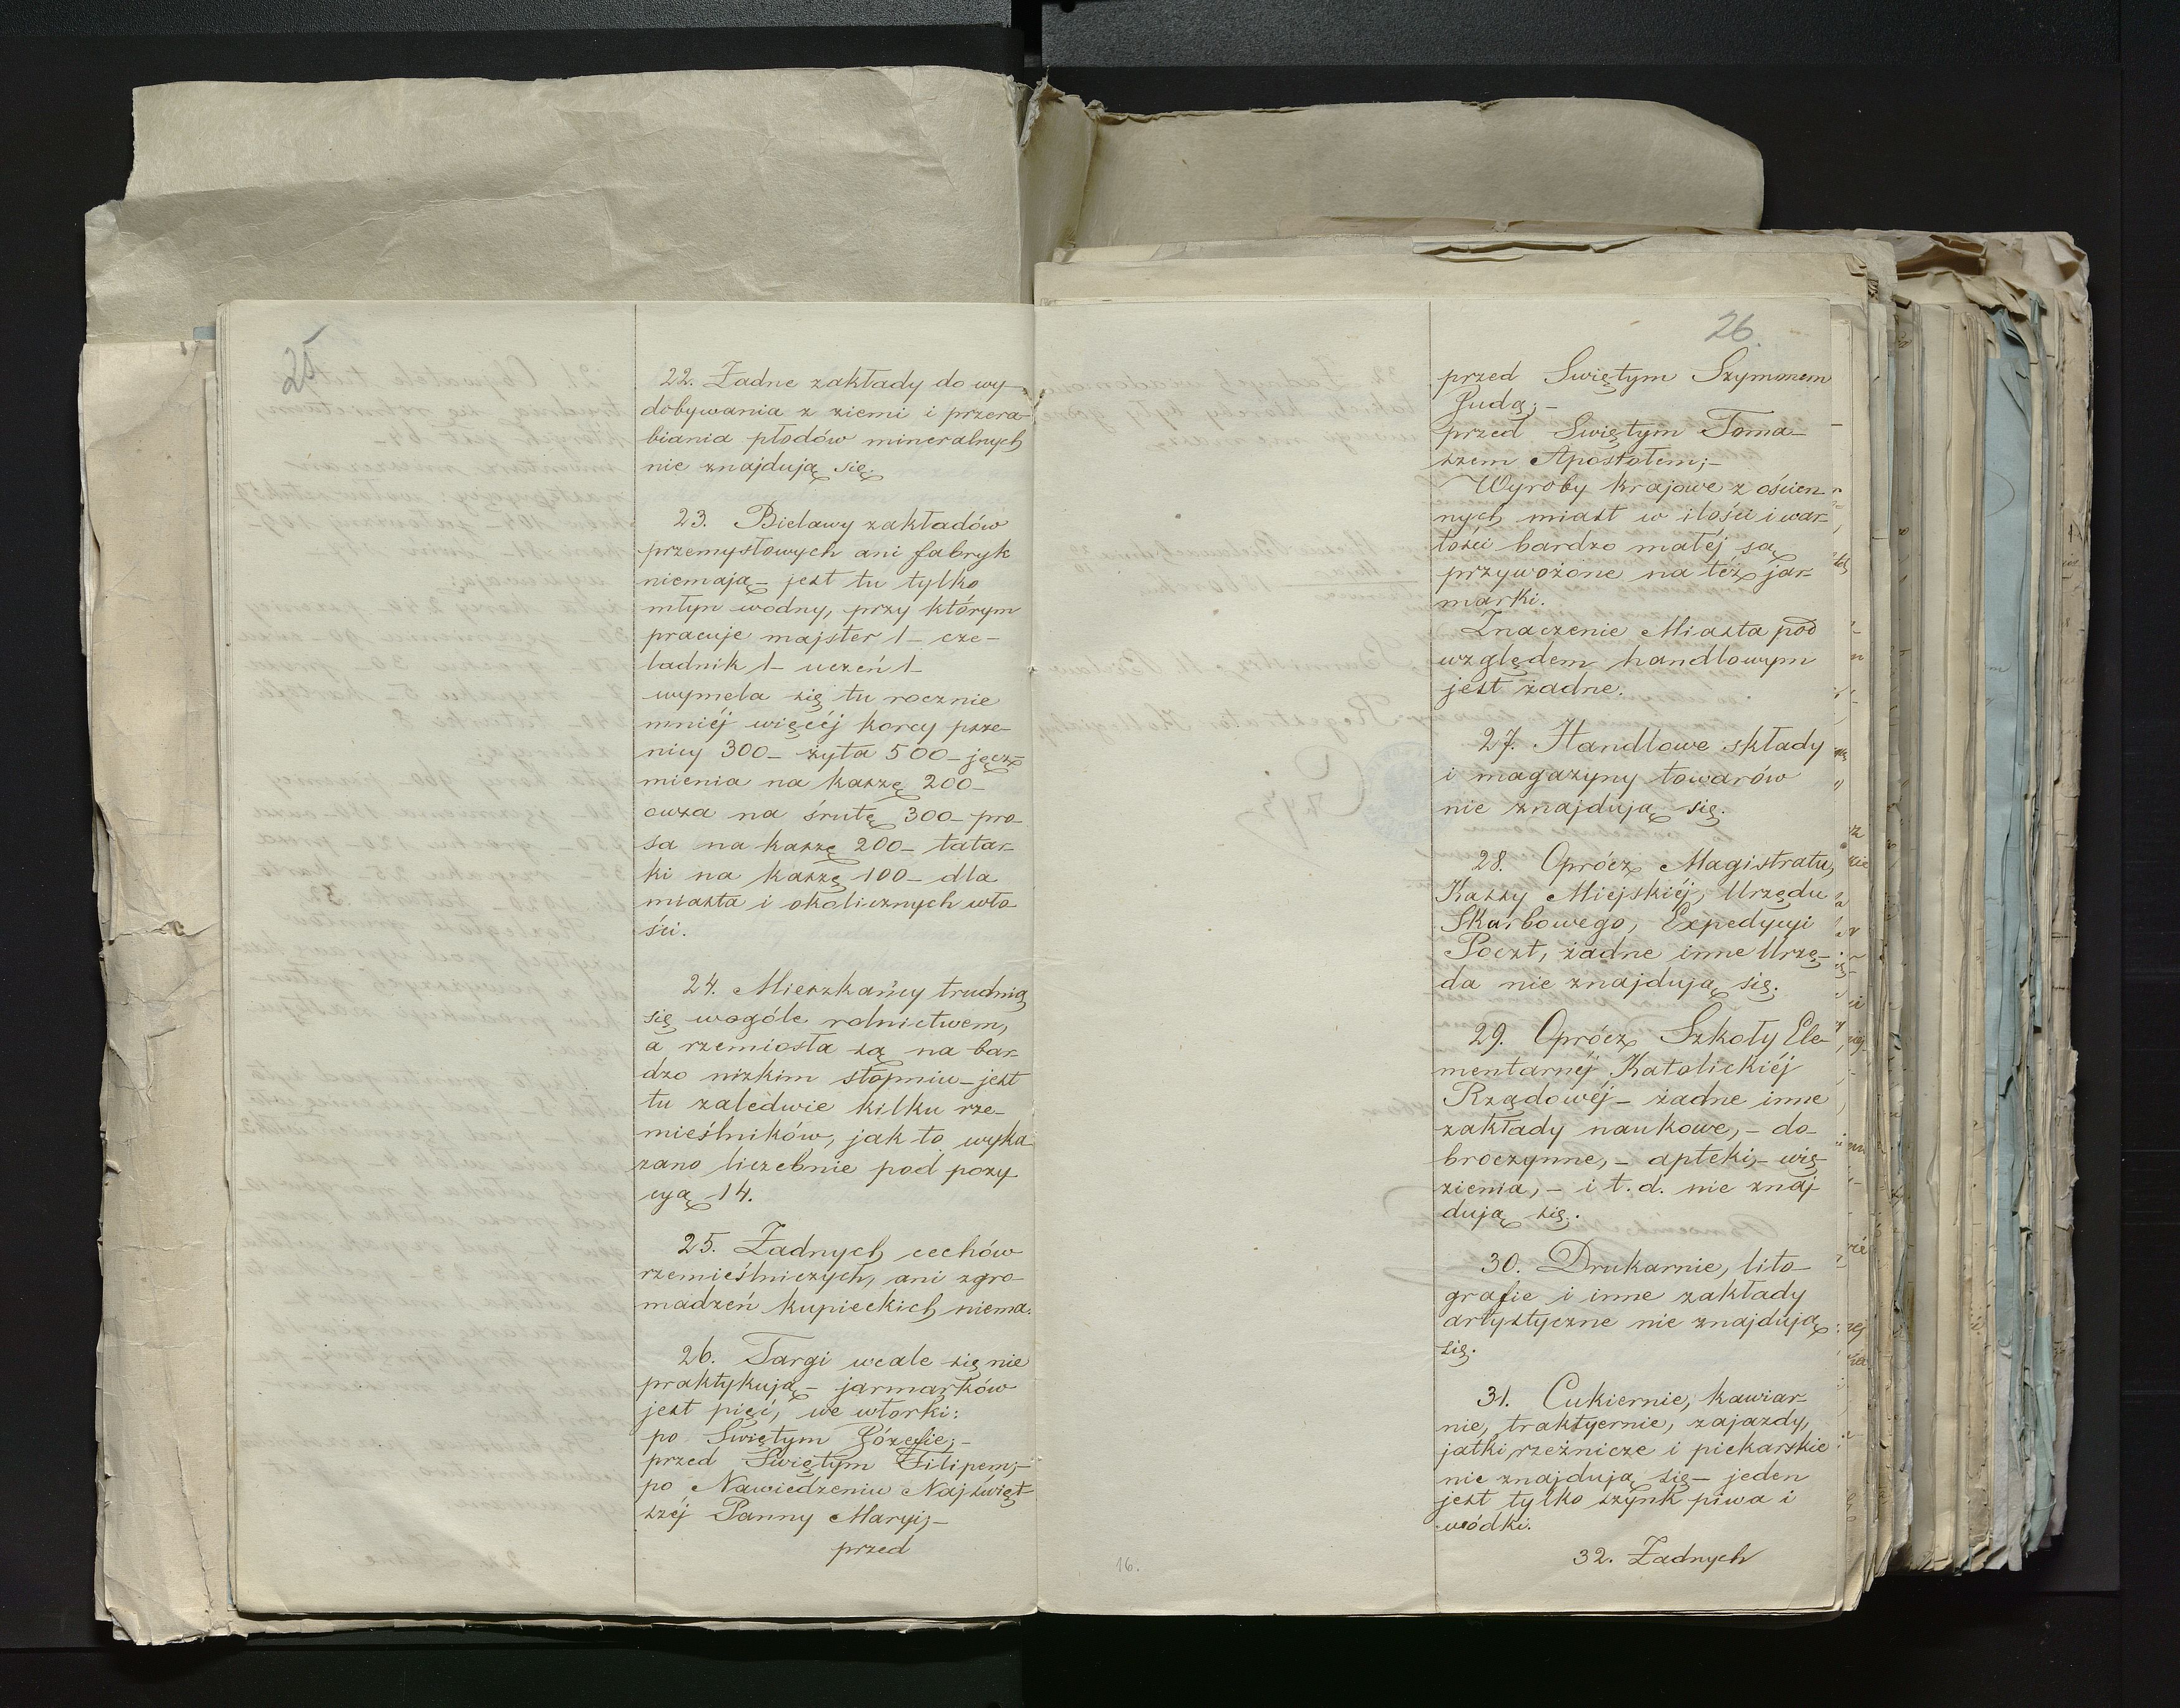 25
22. Żadne zakłady do wy-
dobywania z ziemi i przera-
biania płodów mineralnych
nie znajdują się.
23. Bielawy zakładów
przemysłowych ani fabryk
niemają – jest tu tylko
młyn wodny, przy którym
pracuje majster 1 – cze-
ladnik 1 – uczeń 1 –
wymela się tu rocznie
mniéj więcéj korcy psze-
nicy 300 – żyta 500 – jęcz-
mienia na kaszę 200 –
owsa na śrutę 300 – pro-
sa na kaszę 200 – tatar-
ki na kaszę 100 – dla
miasta i okolicznych wło-
ści.
24. Mieszkańcy trudnią
się wogóle rolnictwem,
a rzemiosła są na bar-
dzo nizkim stopniu – jest
tu zaledwie kilku rze-
mieślników, jak to wyka
zano liczebnie pod pozy-
cyą 14.
25. Żadnych cechów
rzemieślniczych, ani zgro-
madzeń kupieckich niema.
26. Targi wcale się nie
praktykują – jarmarków
jest pięć, we wtorki:
po Swiętym Józefie; –
przed Swiętym Filipem; –
po Nawiedzeniu Najświęt-
széj Panny Maryi; –
przed
26.
przed Swiętym Szymonem
Judą; –
przed Swiętym Toma-
szem Apostołem; –
Wyroby krajowe z ościen-
nych miast w ilości i war-
tości bardzo małéj są
przywożone na też jar-
marki.
Znaczenie Miasta pod
względem handlowym
jest żadne.
27. Handlowe składy
i magazyny towarów
nie znajdują się.
28. Oprócz Magistratu,
Kassy Miejskiéj, Urzędu
Skarbowego, Expedycyi
Poczt, żadne inne Urzę-
da nie znajdują się.
29. Oprócz Szkoły Ele-
mentarnéj Katolickiéj
Rządowéj – żadne inne
zakłady naukowe, – do-
broczynne, – apteki, – wię-
zienia, – i t. d. nie znaj
dują się.
30. Drukarnie, lito-
grafie i inne zakłady
artystyczne nie znajdują
się.
31. Cukiernie, kawiar-
nie, traktyernie, zajazdy,
jatki rzeźnicze i piekarskie
nie znajdują się – jeden
jest tylko szynk piwa i
wódki.
32. Żadnych
16.